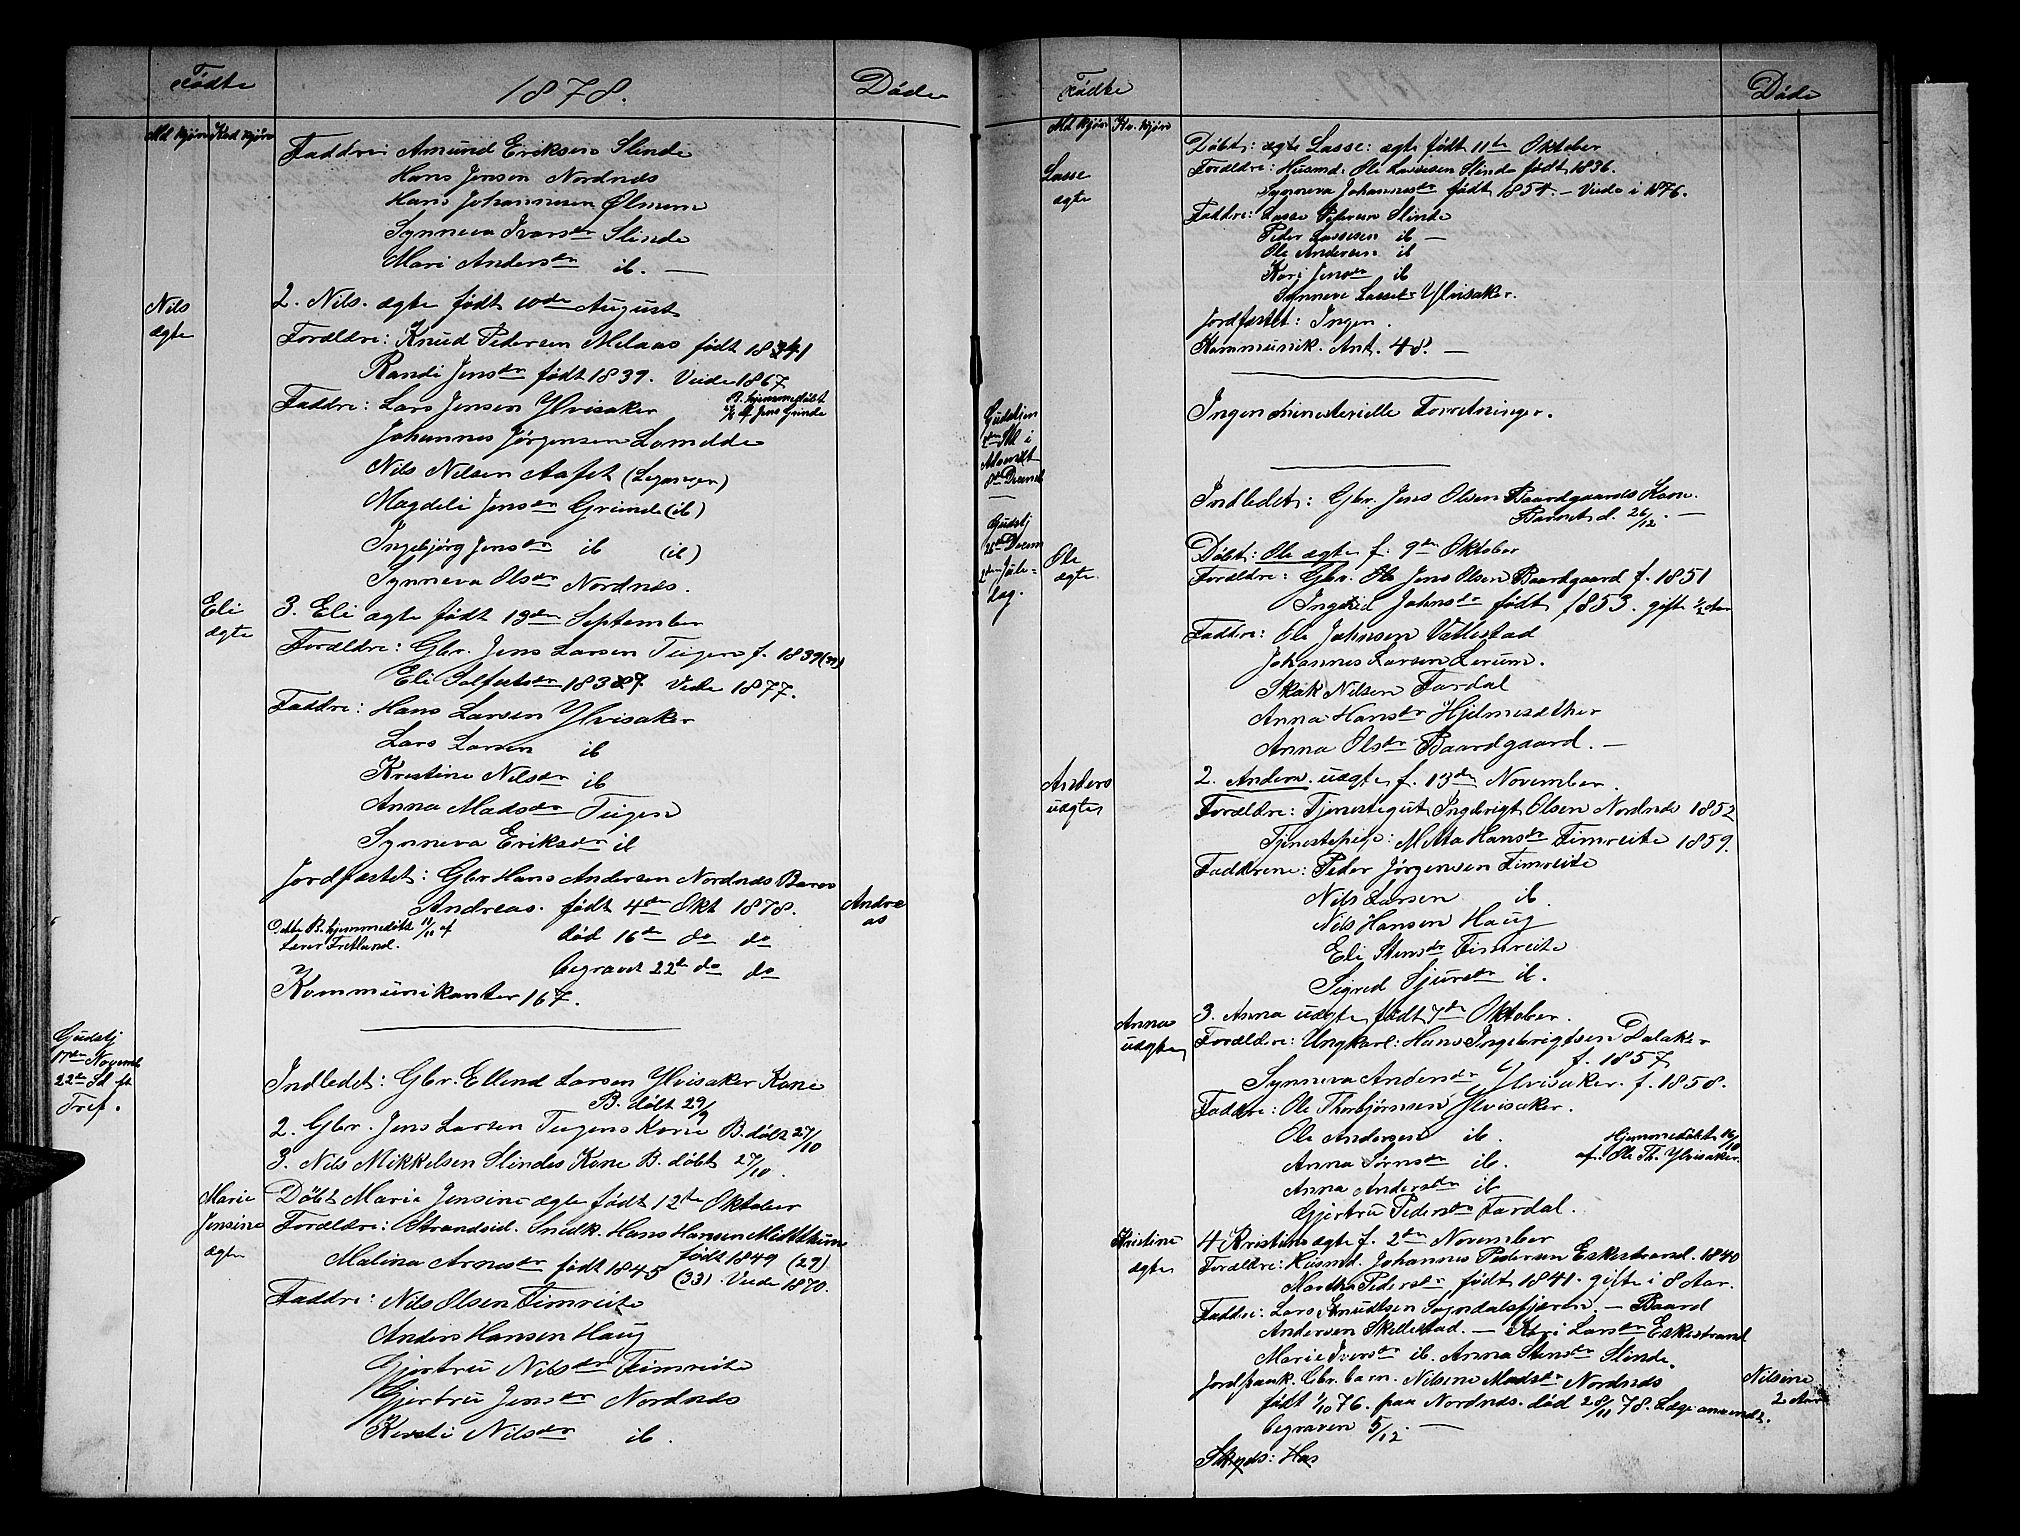 Fødte
1878.
Døde
Md kjøn Kvd kjøn
Faddre: Amund Eriksen Slinde
Hans Jensen Nordnæs
Hans Johannesen Ølmem
Synneva Ivarsdr Slinde
Mari Andersdr ib. —
Nils
ægte
2. Nils. ægte født 10de August
Forældre: Knud Pedersen Melaas født 1841
Randi Jensdr født 1839. Viede 1867
Faddre: Lars Jensen Ylvisaker
B. hjemmedøbt
af Jens Grinde
Johannes Jørgensen Lomelde
Nils Nilsen Aafet (Leganger)
Magdeli Jensdr Grinde (ib)
Ingebjørg Jensdr ib (ib)
Synneva Olsdr Nordnæs.
Eli
ægte
3. Eli ægte født 13de September
Forældre: Gbr. Jens Larsen Teigen f. 1839 (39)
Eli 1837 Viede 1877.
Faddre: Hans Larsen Ylvisaker
Lars Larsen ib
Kristine Nilsdr ib
Anna Madsdr Teigen
Synneva Eriksdr ib
Jordfæstet: Gbr Hans Andersen Nordnæs Barn
Andreas. født 4de Okt 1878.
Andre
as
Dette B. hjemmedøbt 11/11 af
Fretland.
død 16de do do
begravet 22de do do
Kommunikanter 167.
Gudstj
17de Novemb
22de Sd eft
Tref.
Indledet: Gbr. Ellend Larsen Ylvisaker Kone
B. døbt 29/9
2. Gbr. Jens Larsen Teigens Kone B. døbt 27/10
3. Nils Mikkelsen Slindes Kone B. døbt 27/10.
Marie
Jensine
ægte
Døbt Marie Jensine ægte født 12te Oktober
Forældre: Strandsid. Snedk. Hans Hansen Midthun
født 1849 (29)
Malina Arnesdr født 1845 (33). Viede 1870.
Faddre: Nils Olsen Fimreite
Anders Hansen Haug
Gjertru Nilsdr Fimreite
Gjertru Jensdr Nordnæs
Kirsti Nilsdr ib.
Fødte
1879
Døde
Md kjøn Kv. kjøn
Lasse
ægte
Døbt: ægte Lasse: ægte født 11te Oktober
Forældre: Husmd. Ole Lassesen Slinde født 1836.
Synneva Johannesdr født 1854. — Viede i 1876.
Faddre: Lasse Pedersen Slinde
Peder Lassesen ib —
Ole Andersen ib
Kari Jensdr ib
Synneve Lassedr Ylvisaker.
Jordfæstet: Ingen.
Kommunik. Ant. 48. —
Gudstjen
2den Sd i
Advent
8de Decemb
Ingen ministerielle Forretninger.
Gudstj
26de Decem
2den Jule-
dag.
Indledet: Gbr. Jens Olsen Baardgaards Kone.
Barnet d. 26/12. —
Ole
ægte.
Døbt: Ole ægte f. 9de Oktober
Forældre: Gbr. Ole Jens Olsen Baardgaard f. 1851
Ingerid Johnsdr født 1853. gifte 1/2 Aar
Faddre: Ole Johnsen Vattestad
Johannes Larsen Lerum.
Skak Nilsen Fardal
Anna Hansdr Hjelmesæther
Anna Olsdr Baardgaard. —
Anders
uægte
2. Anders. uægte f. 13de November.
Forældre: Tjenestegut Ingebrigt Olsen Nordnæs 1852
Tjenestepige: Metta Hansdr Fimreite 1859.
Faddrene: Peder Jørgensen Fimreite
Nils Larsen ib.
Nils Hansen Haug
Eli Stensdr Fimreite
Sigred Sjursdr ib.
Anna
uægte
3. Anna uægte født 7de Oktober.
Forældre: Ungkarl: Hans Ingebrigtsen Dalaker
f. 1857
Synneva Andersdr Ylvisaker. f. 1858.
Faddre: Ole Thorbjørnsen Ylvisaker.
Ole Andersen ib.
Hjemmedøbt 16/10
af: Ole Th. Ylvisaker.
Anna Sørnsdr ib.
Anna Andersdr ib
Gjertru Pedersdr Fardal.
Kristine
ægte
4 Kristine ægte f. 2den November
Forældre: Husmd. Johannes Pedersen Eskestrand. 1840
Martha Pedersdr født 1841. gifte i 8 Aar.
Faddre: Lars Knudtsen Sogndalsfjæren. — Baard
Andersen Skjeldestad. — Kari Larsdr Eskestrand
Marie Iversdr ib. Anna Stensdr Slinde.
Jordfpaak. Gbr. barn. Nilsine Madsdr Nordnæs
Nilsine
2 Aar
født 1/10 76. paa Nordnæs. død 28/11 78. Læge anvendt.
begraven 5/12. —
Skyds: Has